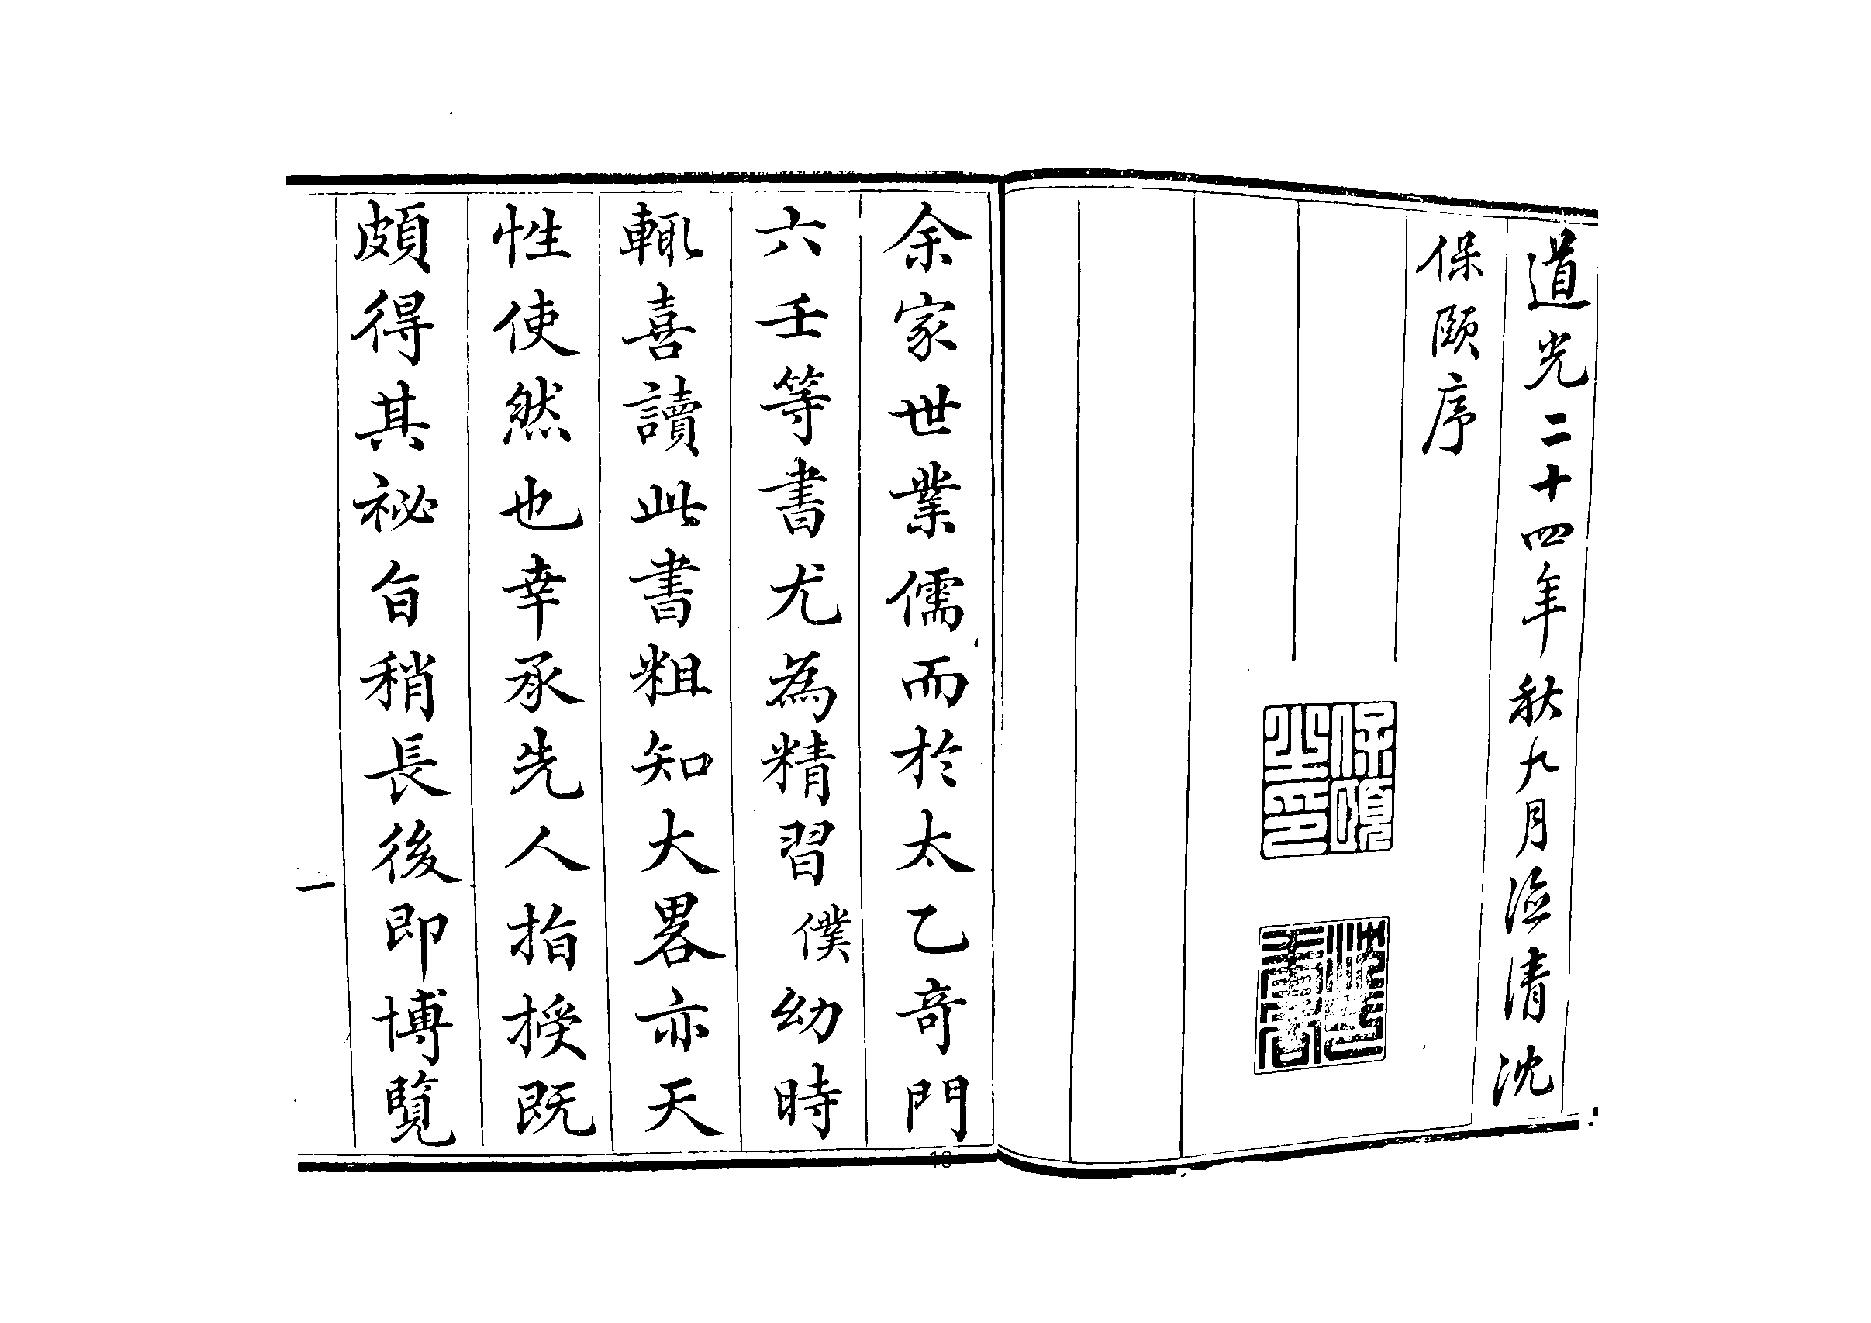 道光二十四年秋九月浍清沈
保頤序
保頤
之印
余家世業儒而於太乙竒門
六壬等書尤為精習僕幼時
輒喜讀此書粗知大畧亦天
性使然也幸承先人指授既
頗得其祕自稍長後即博覽
一